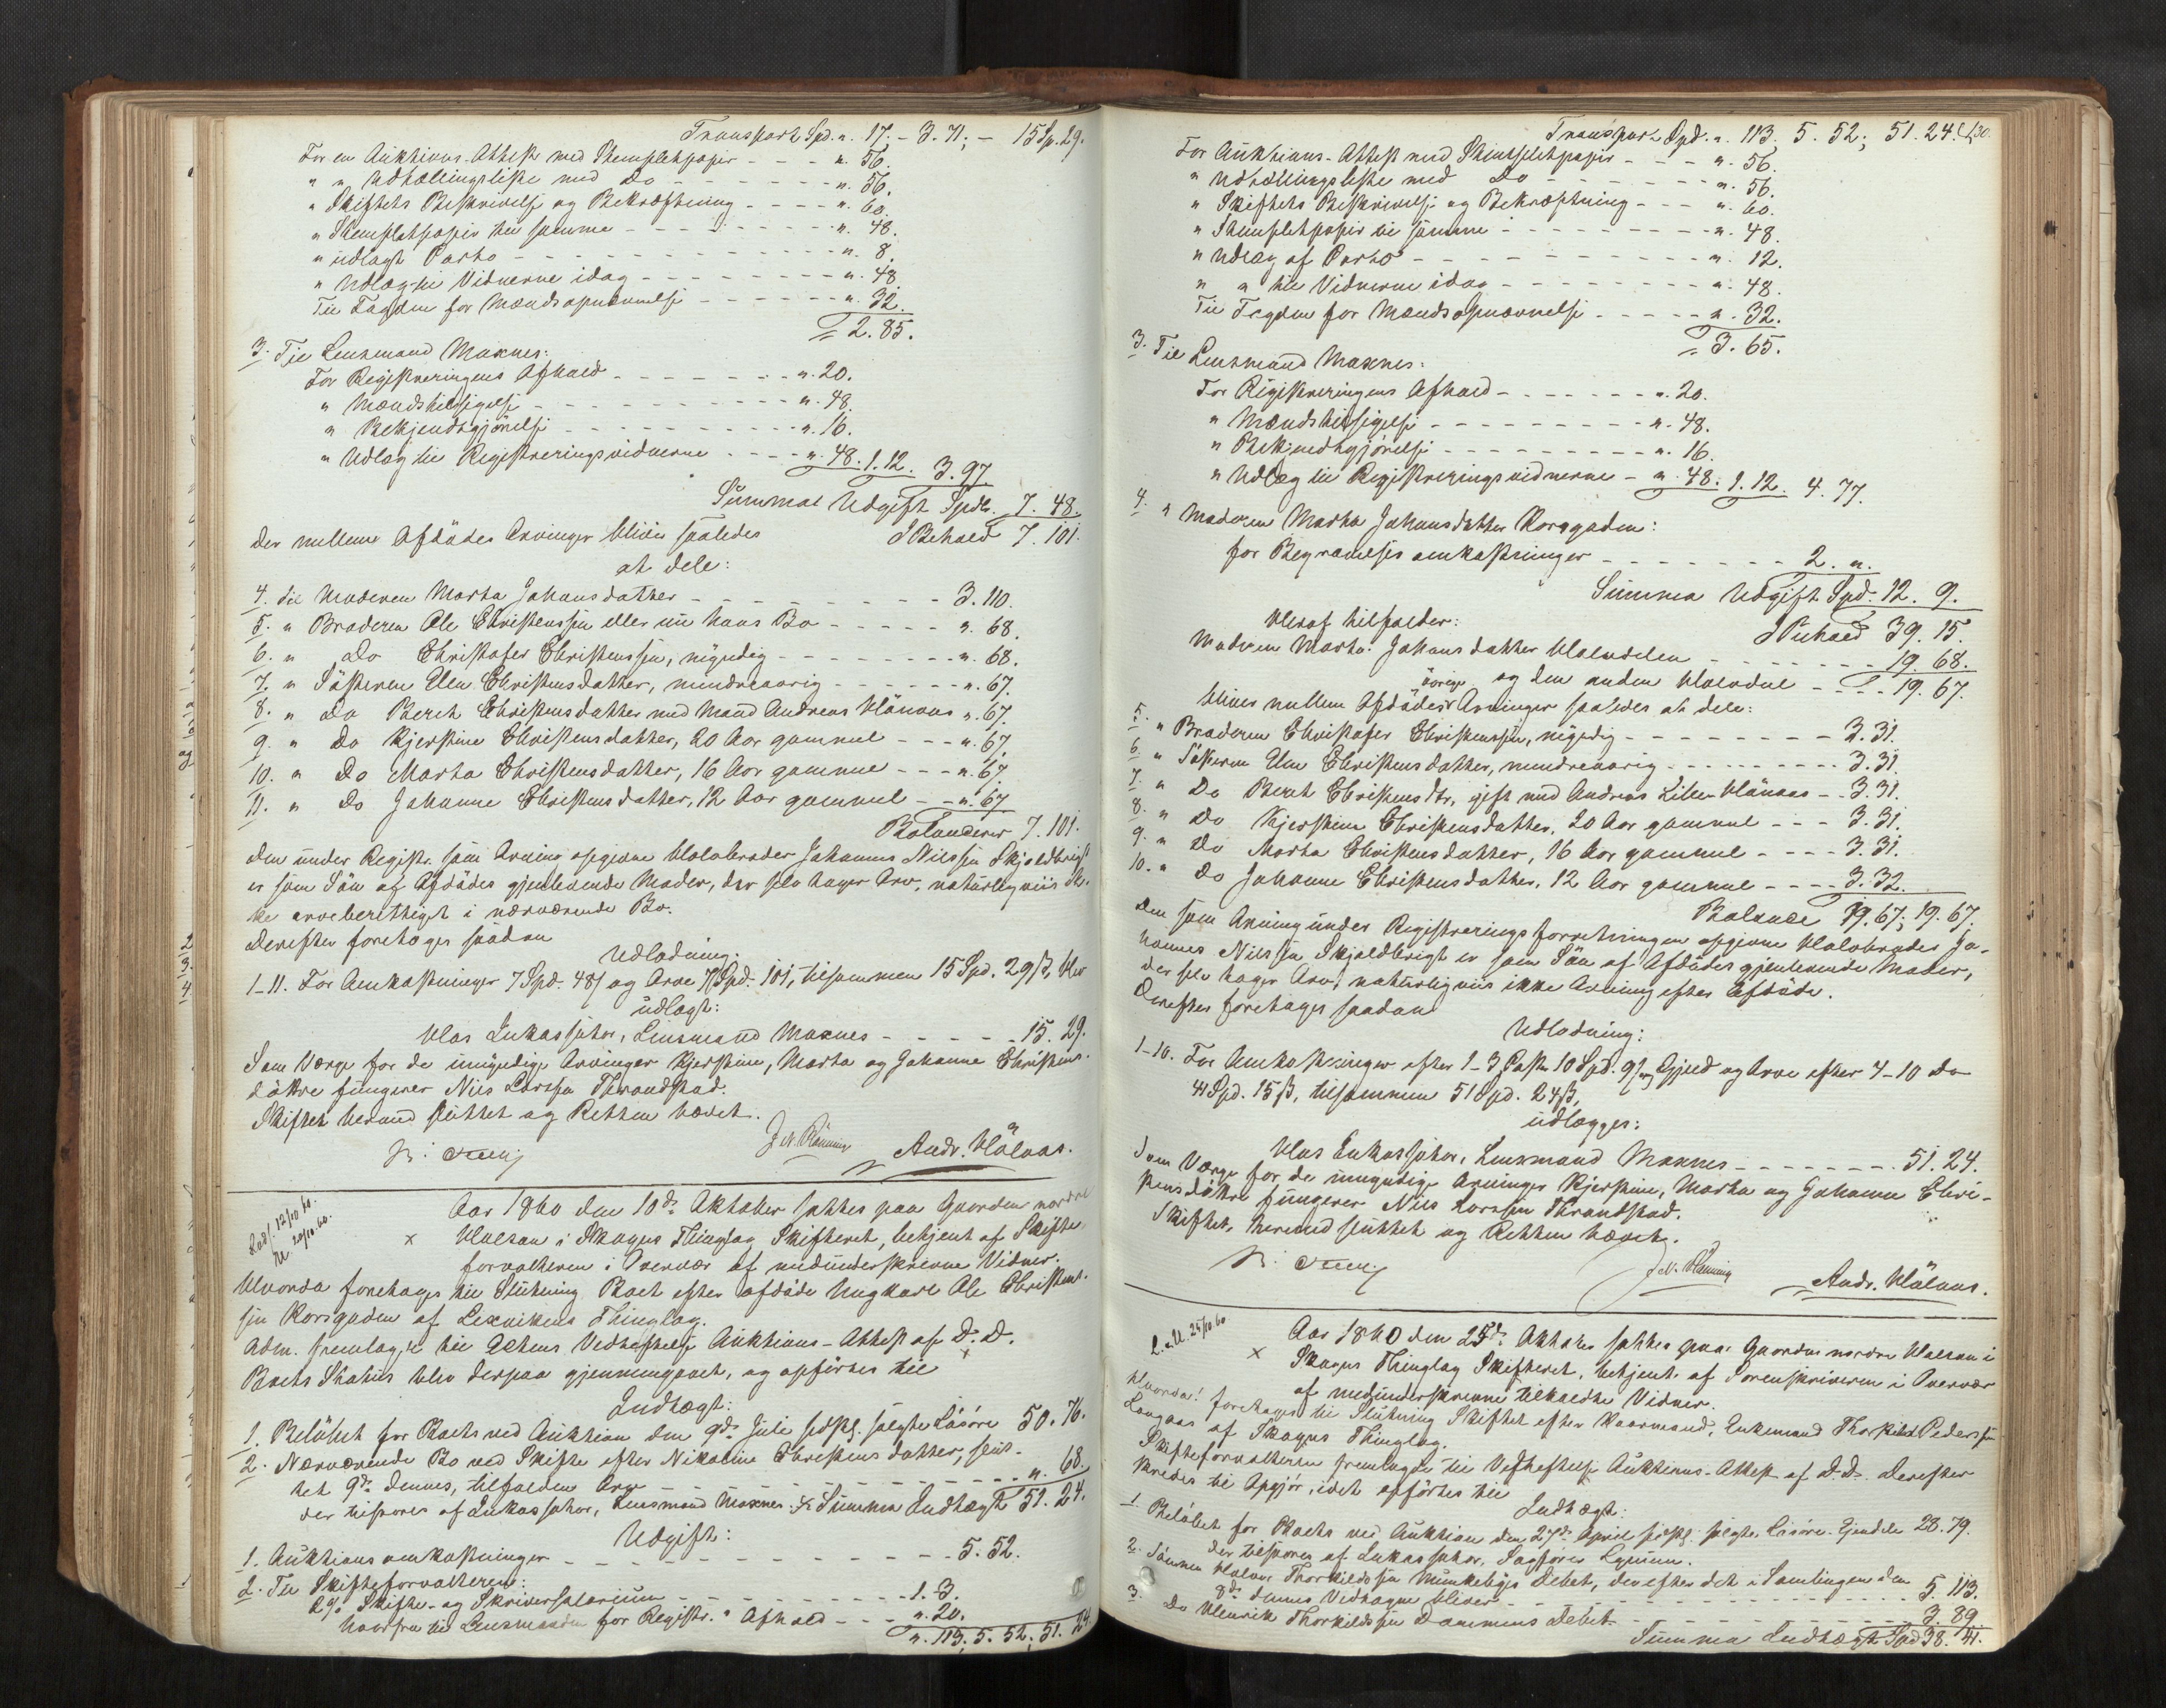 Transport Spd. „ 17. – 3. 71; – 15 Sp. 29.
For en Auktions-Attest med Stempletpapir - - - „. 56.
„ „ Udtællingsliste med Do - - - „. 56.
„ Skiftets Beskrivelse og Bekræftning - - - „. 60.
„ Stempletpapir til samme - - - „. 48.
„ udlagt Porto - - - „. 8.
„ Udlæg til Vidnerne idag - - - „. 48.
Til Fogden for Mændsopnævnelse - - - „. 32.
2. 85.
3. Til Lensmand Moxnes:
For Registreringens Afhold - - - „. 20.
„ Mændstilsigelse - - - „. 48.
„ Bekjendtgjörelse - - - „. 16.
„ Udlæg til Registreringsvidnerne - - - „. 48. 1. 12. 3. 97.
Summa Udgift Spdlr. 7. 48.
Der mellem Afdödes Arvinger bliver saaledes I Behold 7. 101.
at dele:
4. til Moderen Marta Johansdatter - - - 3. 110.
5. „ Broderen Ole Christenssen eller nu hans Bo - - - „. 68.
6. „ Do Christofer Christenssen, myndig - - - „. 68.
7. „ Sösteren Elen Christensdatter, mindreaarig - - - „. 67.
8. „ Do Beret Christensdatter med Mand Andreas Hånaas „. 67.
9. „ Do Kjerstine Christensdatter, 20 Aar gammel - - - „. 67.
10. „ Do Marta Christensdatter, 16 Aar gammel - - - „. 67.
11. „ Do Johanne Christensdatter, 12 Aar gammel - - „. 67
Balancerer 7. 101.
Den under Registr. som Arving opgivne Halvbroder Johannes Nilssen Skjoldbrigt
er som Sön af Afdödes gjenlevende Moder, der selv tager Arv, naturligviis ik-
ke arveberettiget i nærværende Bo.
Derefter foretages saadan
Udlodning:
1–11. For Omkostninger 7 Spd. 48 β og Arv 7 Spd. 101, tilsammen 15 Spd. 29 β, blev
udlagt:
Hos Inkassator, Lensmand Moxnes - - - 15. 29.
Som Værge for de umyndige Arvinger Kjerstine, Marta og Johanne Christens-
döttre fungerer Nils Larssen Thrandstad.
Skiftet hermed sluttet og Retten hævet.
Andr. Hålaas.
Aar 1860 den 10de Oktober sattes paa Gaarden nordre
x Halsan i Skogns Thinglag Skifteret, betjent af Skifte-
forvalteren i Overvær af medunderskrevne Vidner.
Hvorda foretages til Slutning Boet efter afdöde Ungkarl Ole Christens-
sen Korsgaden af Lexvikens Thinglag.
Adm. fremlagde til Actens Vedheftelse Auktions-Attest af D.D.
Boets Status blev derpaa gjennemgaaet, og opförtes til
Indtægt:
1. Belöbet for Boets ved Auktion den 9de Juli sidstl. solgte Lösöre 50. 76.
2. Nærværende Bo ved Skifte efter Nikoline Christensdatter, slut-
tet 9de dennes, tilfalden Arv - - - „. 68.
der tilsvares af Inkassator, Lensmand Moxnes Summa Indtægt 51. 24.
Udgift:
1. Auktionsomkostninger - - - 5. 52.
2. Til Skifteforvalteren:
2% Skifte- og Skriversalarium - - - 1. 3.
hvorfra til Lensmanden for Registr. Afhold - - - „. 20.
„. 113; 5. 52; 51. 24
Transport Spd. „. 113, 5. 52; 51. 24.
For Auktions-Attest med Stempletpapir - - - „. 56.
„ Udtællingsliste med Do - - - „. 56.
„ Skiftets Beskrivelse og Bekræftning - - - „. 60.
„ Stempletpapir til samme - - - „. 48.
„ Udlæg af Porto - - - „. 12.
„ „ til Vidnerne idag - - - „. 48.
Til Fogden for Mændsopnævnelse - - - „. 32.
3. 65.
3. Til Lensmand Moxnes:
For Registreringens Afhold - - - „. 20.
„ Mændstilsigelse - - - „. 48.
„ Bekjendtgjörelse - - - „. 16.
„ Udlæg til Registreringsvidnerne - „. 48. 1. 12. 4. 77.
4. „ Moderen Marta Johansdatter Korsgaden:
for Begravelsesomkostninger - - - 2. „.
Summa Udgift Spd. 12. 9.
Heraf tilfalder: I Behold 39. 15.
Moderen Marta Johansdatter Halvdelen - - - 19. 68.
og den anden Halvdel - - - 19. 67.
bliver mellem Afdödes övrige Arvinger saaledes at dele:
5. „ Broderen Christofer Christenssen, myndig - - - 3. 31.
6. „ Sösteren Elen Christensdatter, mindreaarig - - - 3. 31.
7. „ Do Beret Christensdtr, gift med Andreas Lillehånaas - - 3. 31.
8. „ Do Kjerstine Christensdatter, 20 Aar gammel - - - 3. 31.
9. „ Do Marta Christensdatter, 16 Aar gammel - - - 3. 31.
10. „ Do Johanne Christensdatter, 12 Aar gammel - - - 3. 32.
Balance 19. 67; 19. 67.
Den som Arving under Registreringsforretningen opgivne Halvbroder Jo-
hannes Nilssen Skjoldbrigt er som Sön af Afdödes gjenlevende Moder,
der selv tager Arv, naturligviis ikke Arving efter Afdöde.
Derefter foretages saadan
Udlodning:
1–10. For Omkostninger efter 1–3 Post 10 Spd. 9 β, og Gjeld og Arv efter 4–10 Do
41 Spd. 15 β, tilsammen 51 Spd. 24 β,
udlægges:
Hos Inkassator, Lensmand Moxnes - - - 51. 24.
Som Værge for de umyndige Arvinger Kjerstine, Marta og Johanne Chri-
stensdöttre fungerer Nils Larssen Thrandstad.
Skiftet hermed sluttet og Retten hævet.
Andr. Hålaas.
Aar 1860 den 25de Oktober sattes paa Gaarden nordre Halsan i
x Skogns Thinglag Skifteret, betjent af Sorenskriveren i Overvær
af medunderskrevne tilkaldte Vidner.
Hvorda! foretages til Slutning Skiftet efter Kaarmand, Enkemand Thorkild Pederssen
Langaas af Skogns Thinglag.
Skifteforvalteren fremlagde til Vedheftelse Auktions-Attest af D.D. Derefter
skredes til Opgjör, idet opförtes til
Indtægt:
1. Belöbet for Boets ved Auktion den 27de April sidstl. solgte Lösöre-Eiendele 28. 79.
der tilsvares af Inkassator, Sagförer Lynum.
2. Sönnen Halvor Thorkildssen Munkebyes Debet, der efter det i Samlingen den
8de dennes Vedtagne bliver - - - 5. 113.
3. Do Henrik Thorkildssen Dammens Debet - - - 3. 89.
Summa Indtægt Spd 38. 41.